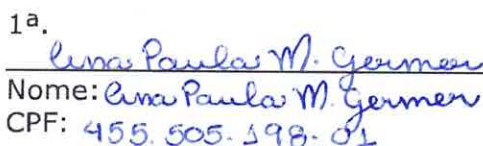 1ª.
Ana Paula M. Germer
Nome: Ana Paula M. Germer
CPF: 455.505.198-01